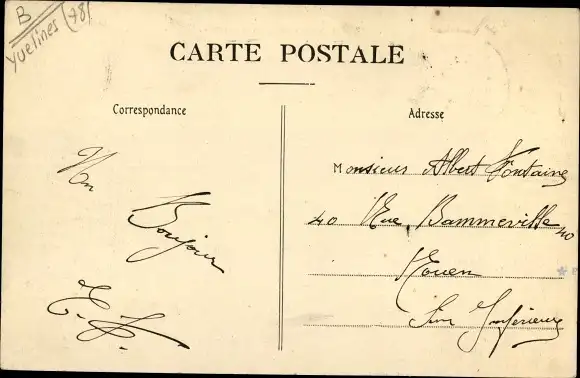 B
Yvelines (78)
CARTE POSTALE
Correspondance
Un
Bonjour
Adresse
Monsieur Albert Fontaine
40 Rue Bammeville 40
Rouen
Sine Inférieure